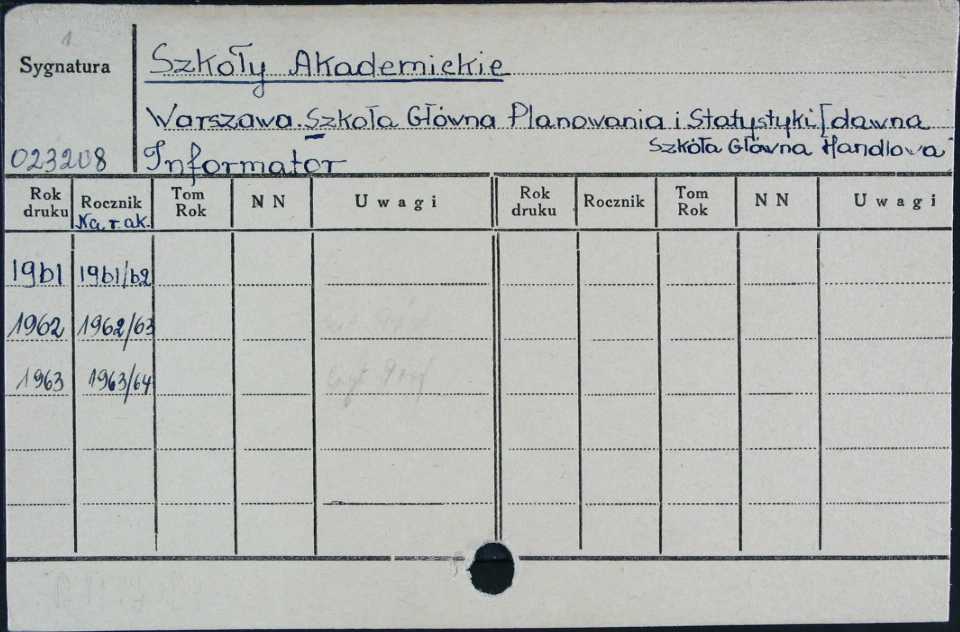 1
Sygnatura
Szkoły Akademickie
Warszawa. Szkoła Główna Planowania i Statystyki [dawna
Szkoła Główna Handlowa
023208
Informator
Rok druku Rocznik Tom Rok N N Uwagi Rok druku Rocznik Tom Rok N N Uwagi
Na r. ak.
1961 1961/62
1962 1962/63
1963 1963/64